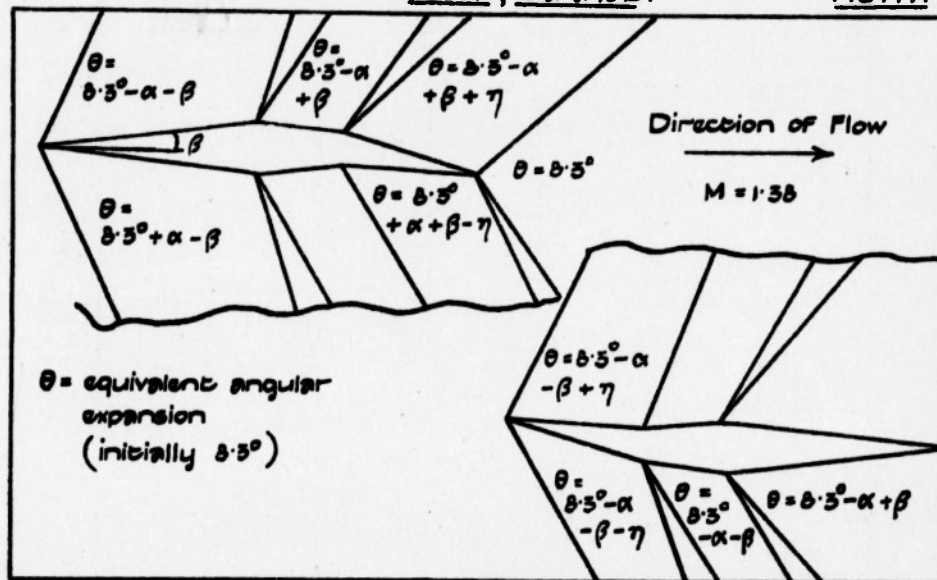 θ =
8·3°-α-β
θ =
8·3°-α
+β
θ = 8·3°-α
+β+η
Direction of Flow
M = 1·38
β
θ = 8·3°
θ =
8·3°+α-β
θ = 8·3°
+α+β-η
θ = 8·3°-α
-β+η
θ = equivalent angular
expansion
(initially 8·3°)
θ =
8·3°-α
-β-η
θ =
8·3°
-α-β
θ = 8·3°-α+β